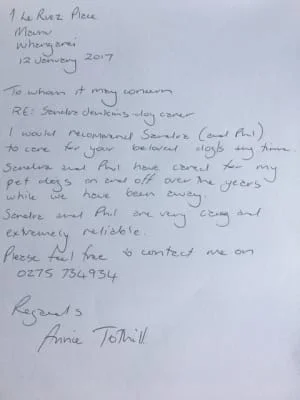 1 Le Ruez Place
Maunu
Whangarei
12 January 2017
To whom it may concern
RE: Sandra Jenkins dog carer
I would recommend Sandra (and Phil)
to care for your beloved dogs any time.
Sandra and Phil have cared for my
pet dogs on and off over the years
while we have been away.
Sandra and Phil are very caring and
extremely reliable.
Please feel free to contact me on
0275 734934
Regards
Annie Tothill